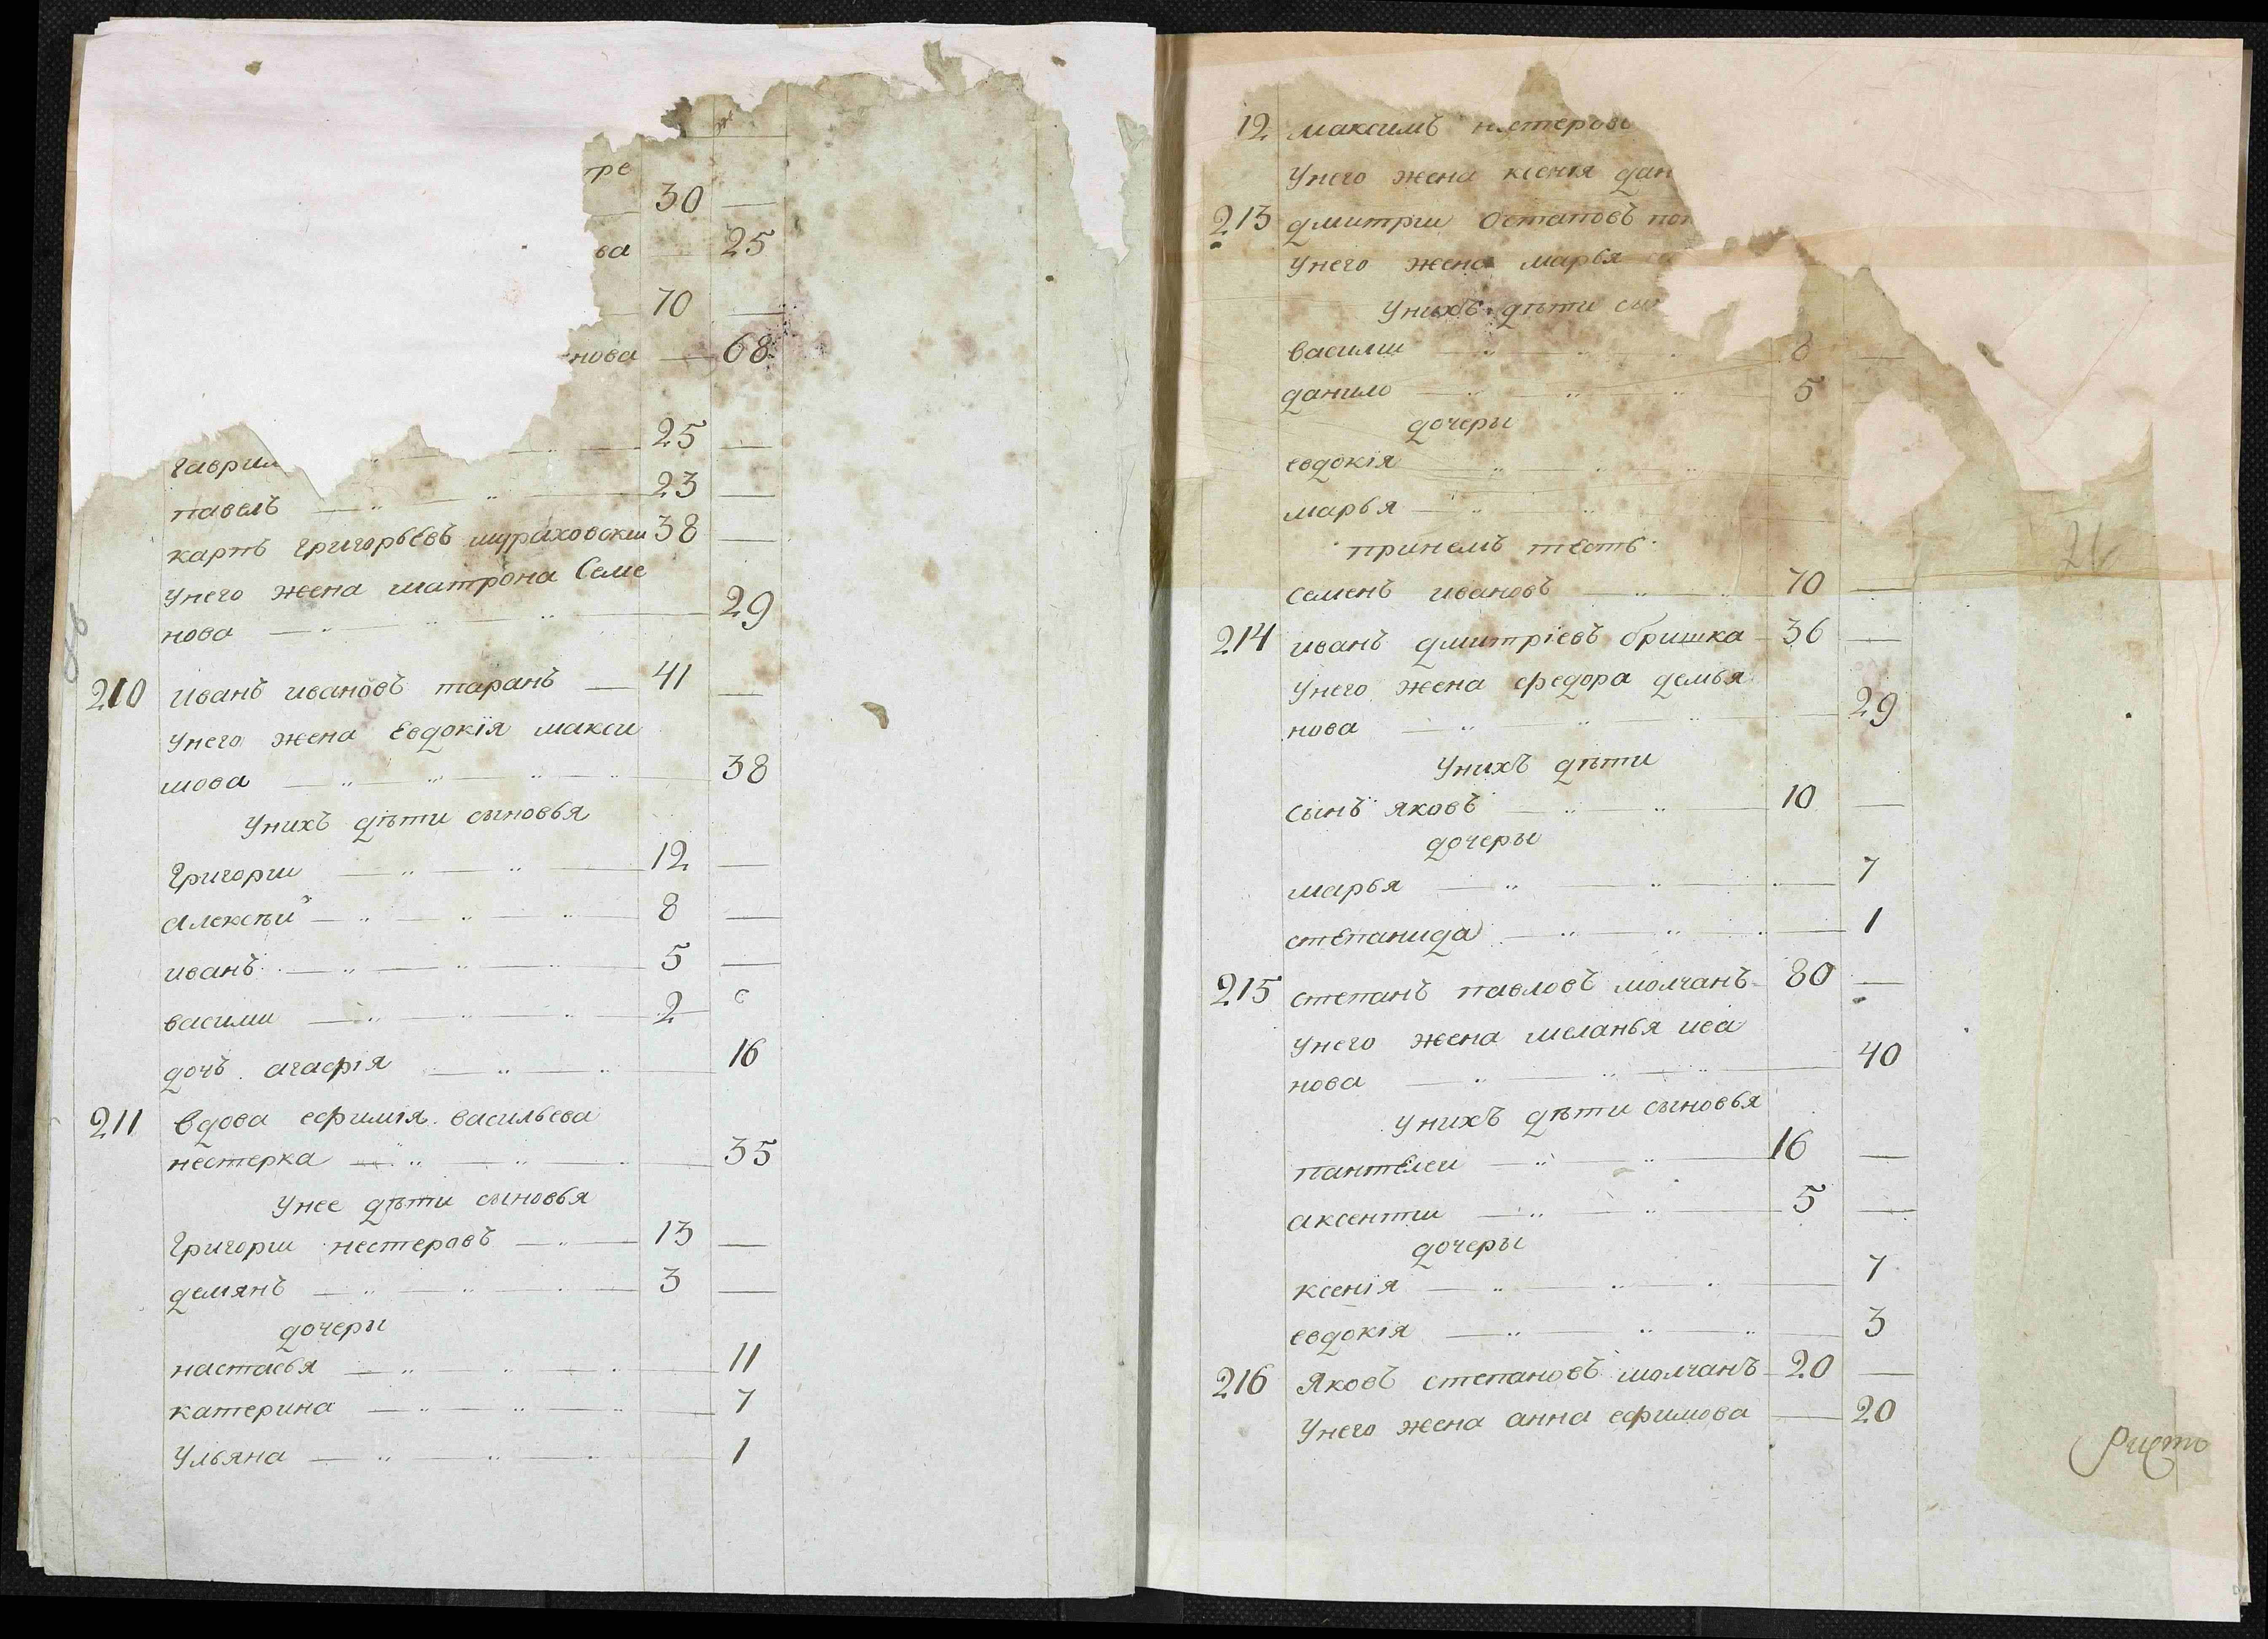 тре
30 —
ва — 25
70 —
нова — 68
25 —
гаврил
павелъ — 23 —
карпъ григорьевъ шураховски 38 —
Унего жена матрона Семе
нова — 29
210 Иванъ ивановъ таранъ — 41 —
Унего жена Евдокїя макси
мова — 38
Унихъ дѣти сыновья
Григори — 12 —
Алексѣй — 8 —
иванъ — 5 —
васили — 2
дочь агафія — 16
211 Вдова ефимія васильева
нестерка — 35
Унее дѣти сыновья
Григори нестеровъ — 13 —
демянъ — 3 —
дочеры
настасья — 11
катерина — 7
Ульяна — 1
12 максимъ нестеровъ
Унего жена ксенія дан
213 дмитри Остаповъ поп
Унего жена марья
Унихъ дѣти сы
васили — 8 —
данило — 5
дочеры
евдокія —
марья —
принемъ тесть
семенъ ивановъ — 70 —
214 иванъ дмитріевъ бришка — 36 —
Унего жена федора демья
нова — 29
Унихъ дѣти
сынъ яковъ — 10 —
дочеры
марья — 7
степанида — 1
215 степанъ павловъ молчанъ — 80 —
Унего жена меланья ива
нова — 40
Унихъ дѣти сыновья
пантелеи — 16 —
аксенти — 5 —
дочеры
ксенія — 7
евдокія — 3
216 Яковъ степановъ молчанъ — 20 —
Унего жена анна ефимова — 20